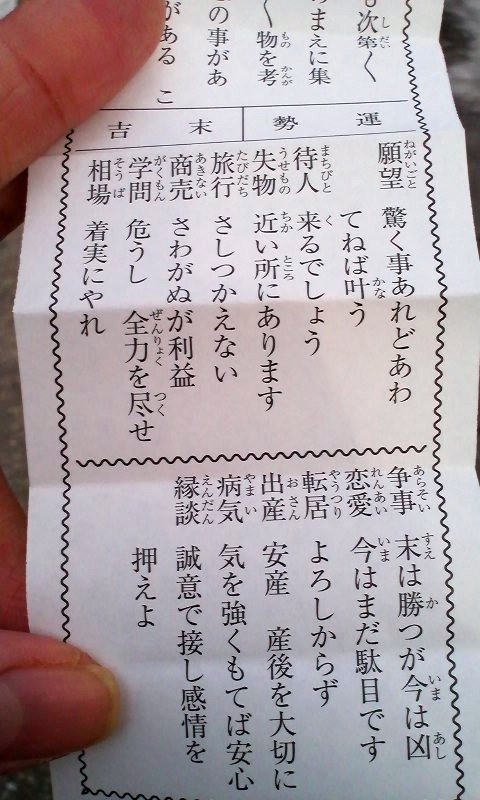 次第く
まえに集
く物を考
の事があ
がある こ
運勢 末吉
願望 驚く事あれどあわ
てねば叶う
待人 来るでしょう
失物 近い所にあります
旅行 さしつかえない
商売 さわがぬが利益
学問 危うし 全力を尽せ
相場 着実にやれ
争事 末は勝つが今は凶
恋愛 今はまだ駄目です
転居 よろしからず
出産 安産 産後を大切に
病気 気を強くもてば安心
縁談 誠意で接し感情を
押えよ